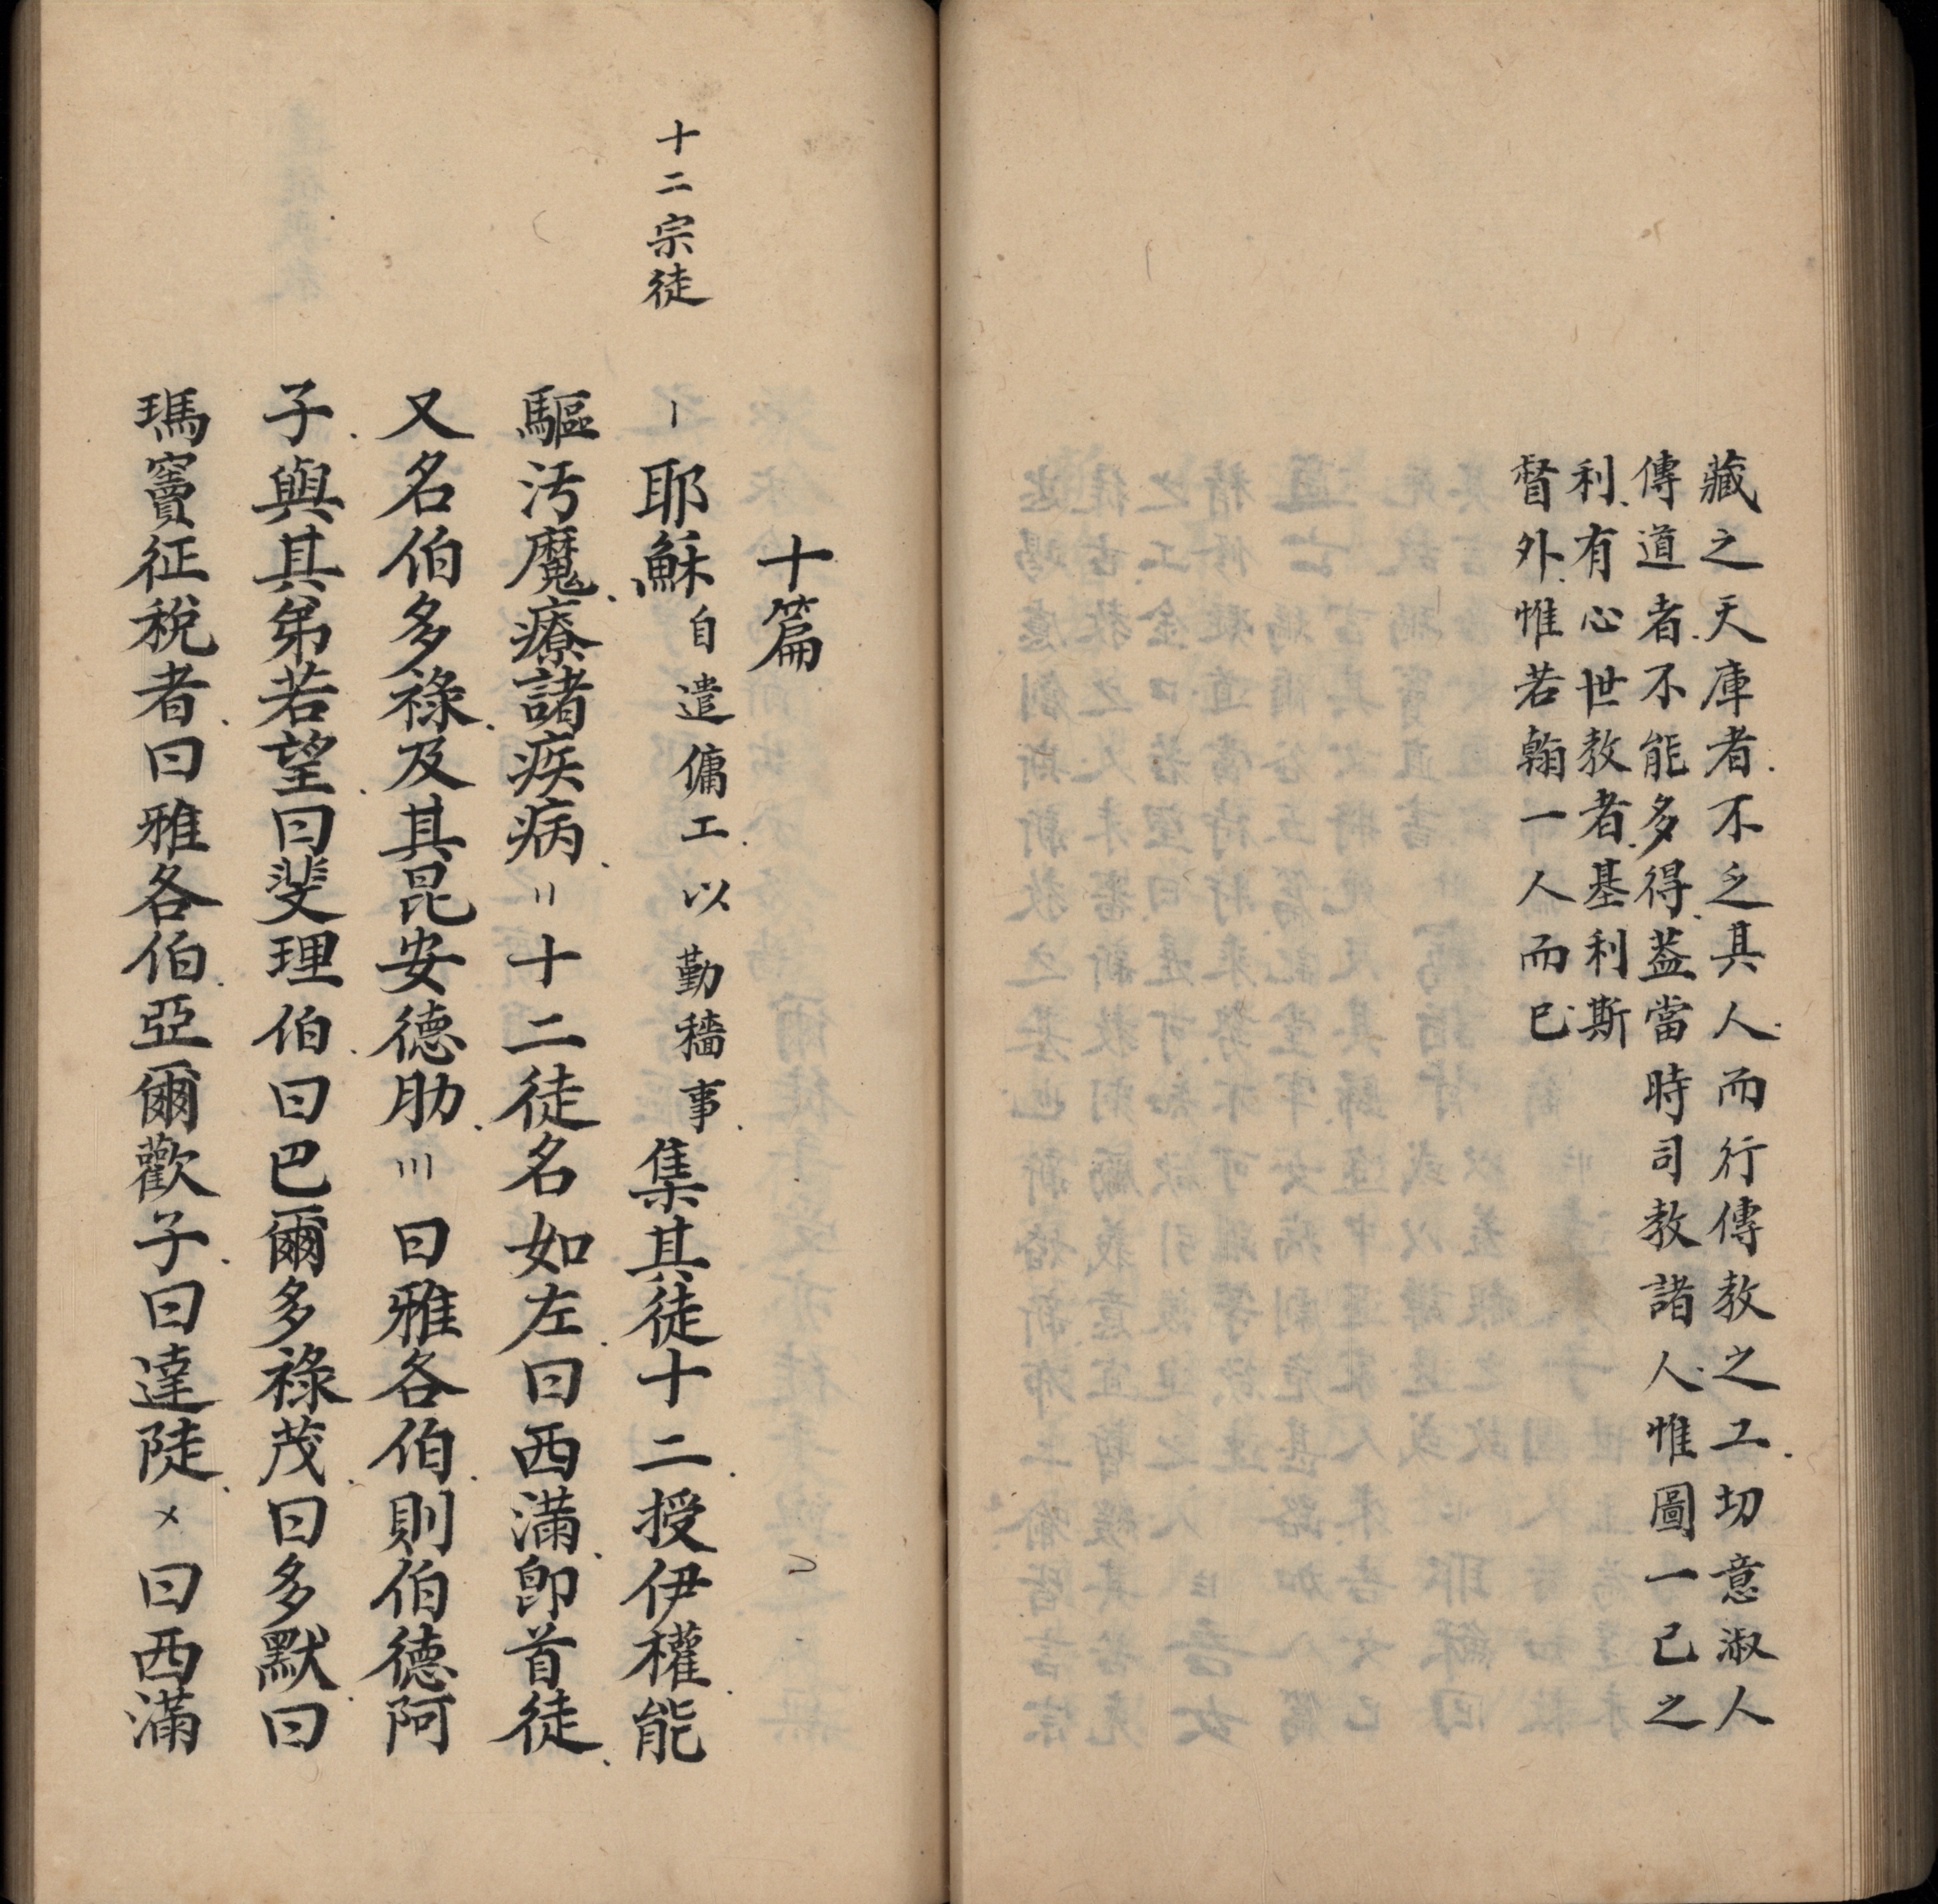 藏之天庫者不乏其人而行傳教之工切意淑人
傳道者不能多得蓋當時司教諸人惟圖一己之
利有心世教者基利斯
督外惟若翰一人而已
十篇
十二宗徒
〡耶穌自遣傭工以勤穡事集其徒十二授伊權能
驅汚魔療諸疾病〢十二徒名如左曰西滿卽首徒
又名伯多祿及其昆安德肋〣曰雅各伯則伯德阿
子與其弟若望曰斐理伯曰巴爾多祿茂曰多默曰
瑪竇征稅者曰雅各伯亞爾歡子曰達陡〤曰西滿